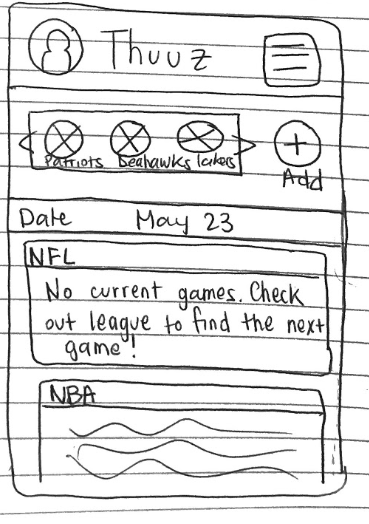 Thuuz
Patriots Seahawks lakers
Add
Date May 23
NFL
No current games. Check
out league to find the next
game!
NBA